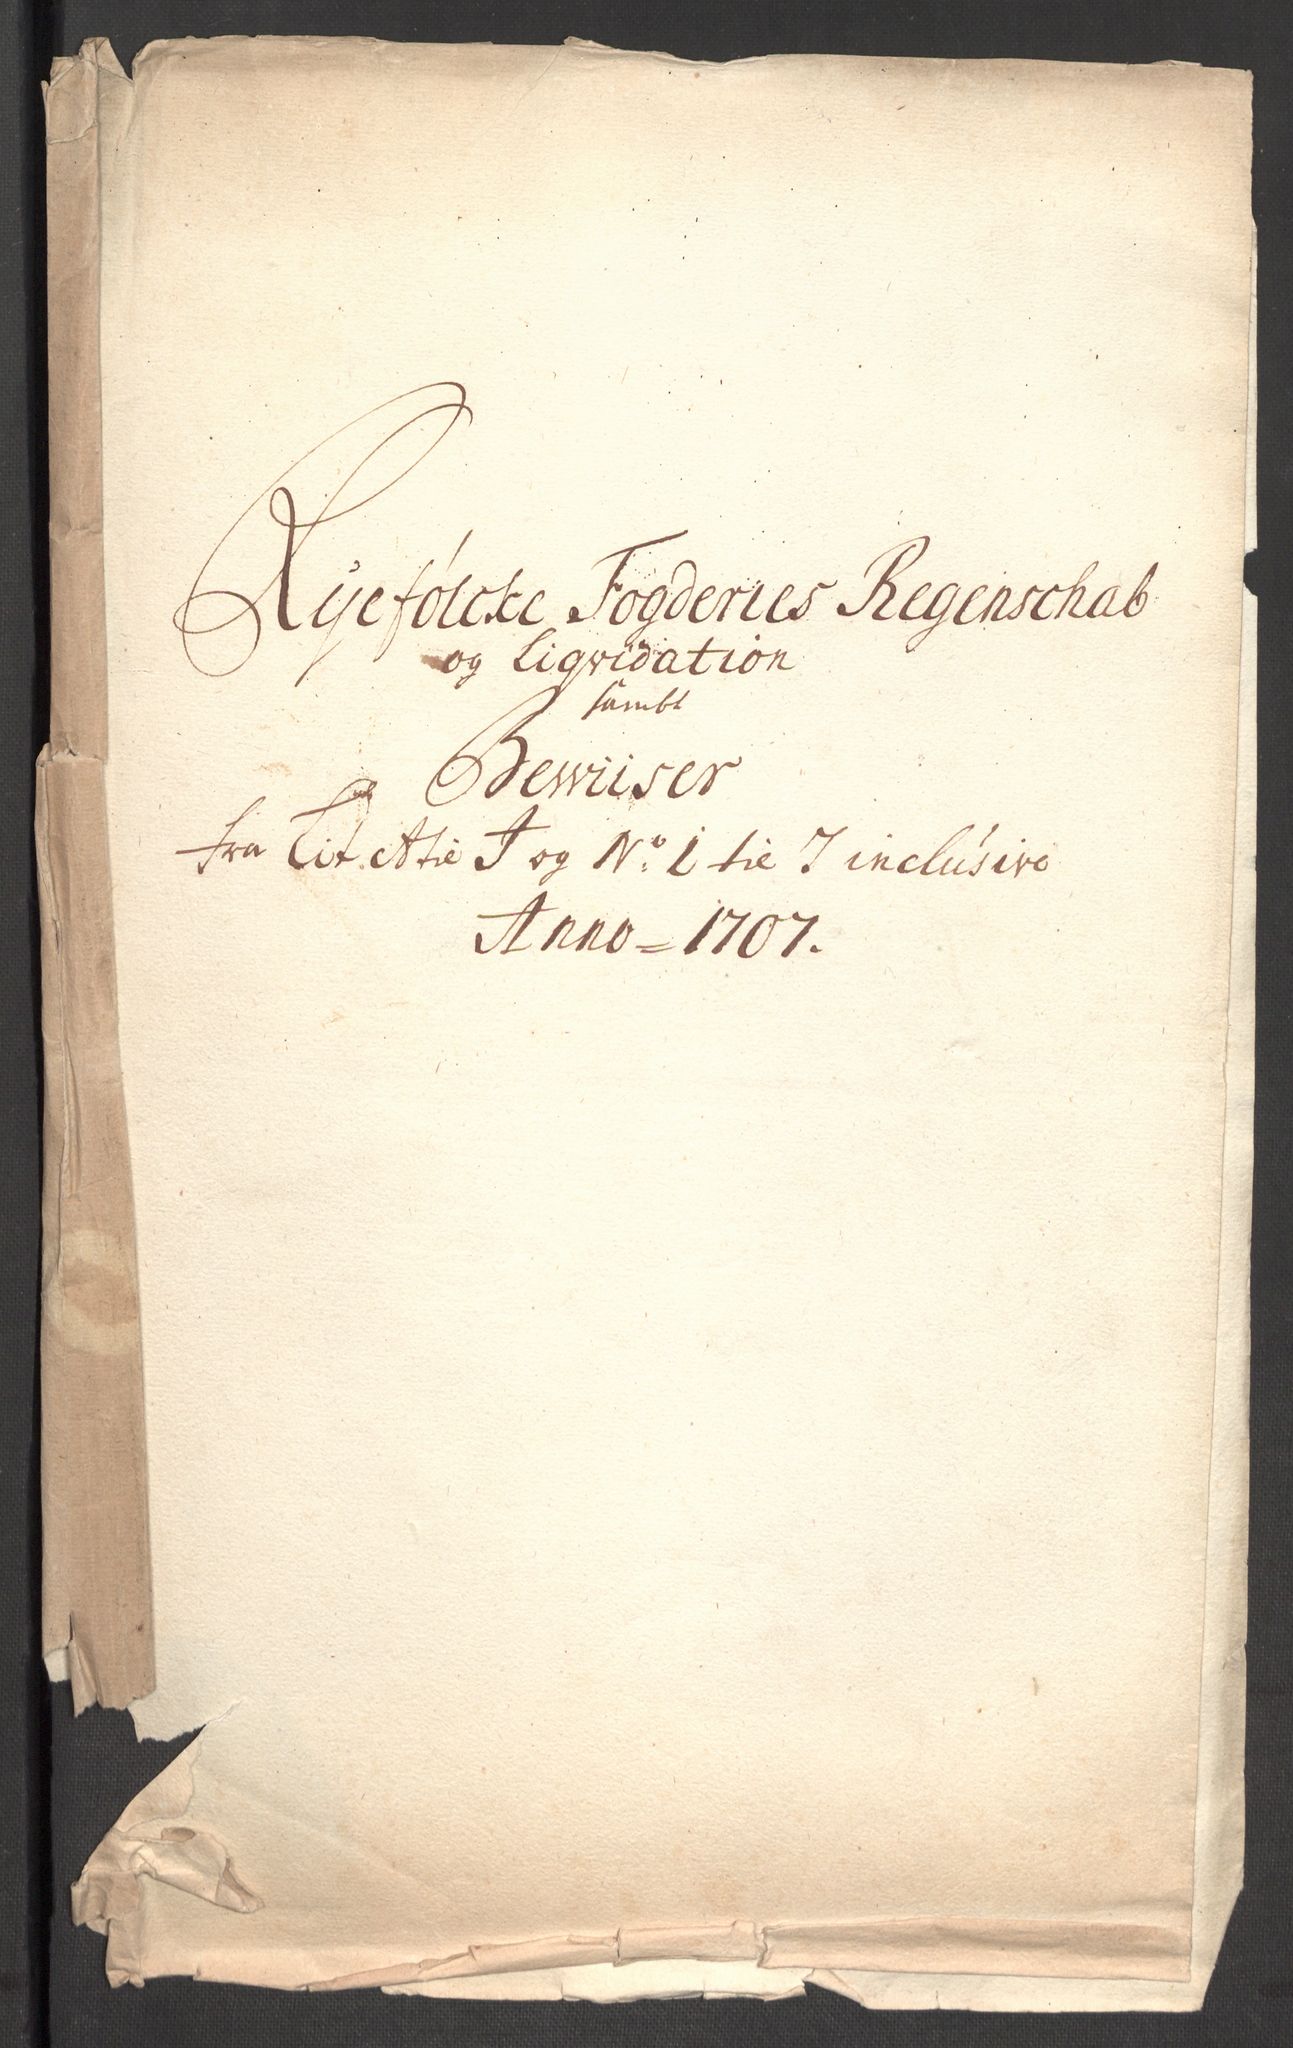 Ryefølcke Fogderies Regenschab
og Liqvidation
sambt
Bewiiser
fra Lit. A tie J og No. 1 tie 7 inclusive
Anno = 1707.